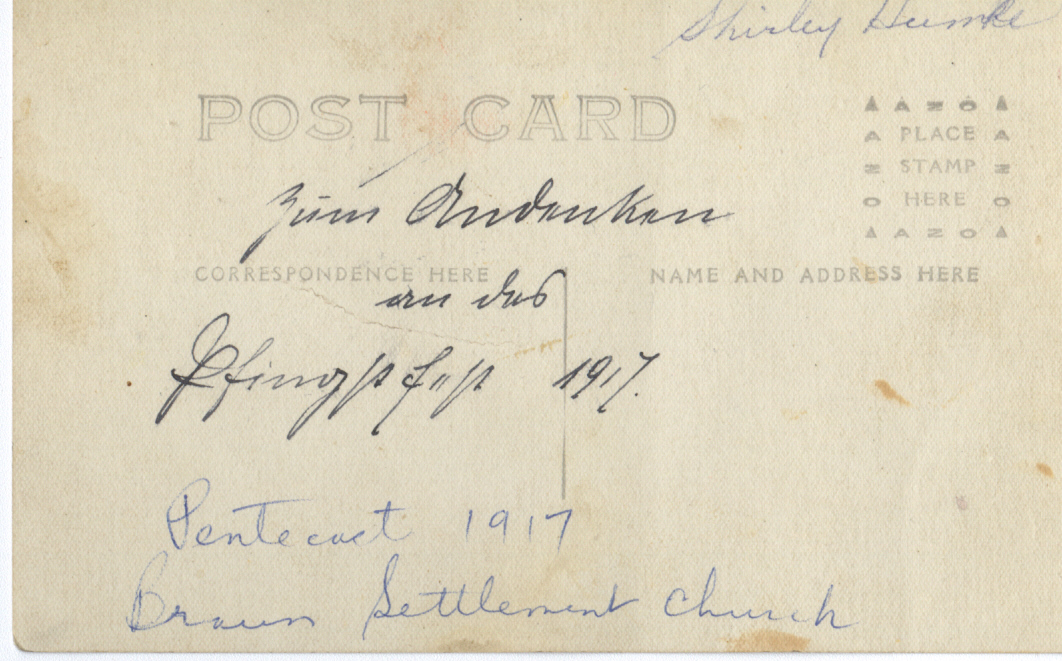 Shirley Humke
POST CARD
AZO
PLACE
STAMP
HERE
AZO
Zum Andenken
CORRESPONDENCE HERE
NAME AND ADDRESS HERE
an das
Pfingstfest 1917.
Pentecost 1917
Braun Settlement Church